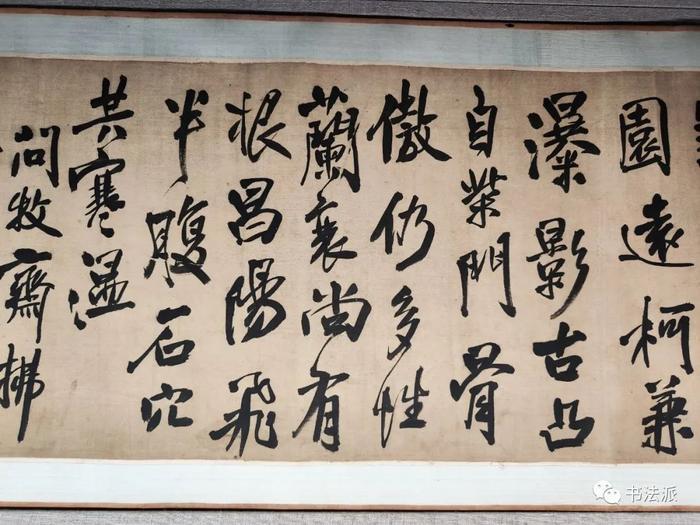 園遠柯兼
瀑影古凸
自柴門骨
傲仍多性
蘭衰尚有
根昌陽飛
半腹石穴
共寒温
問牧齋拂
书法派